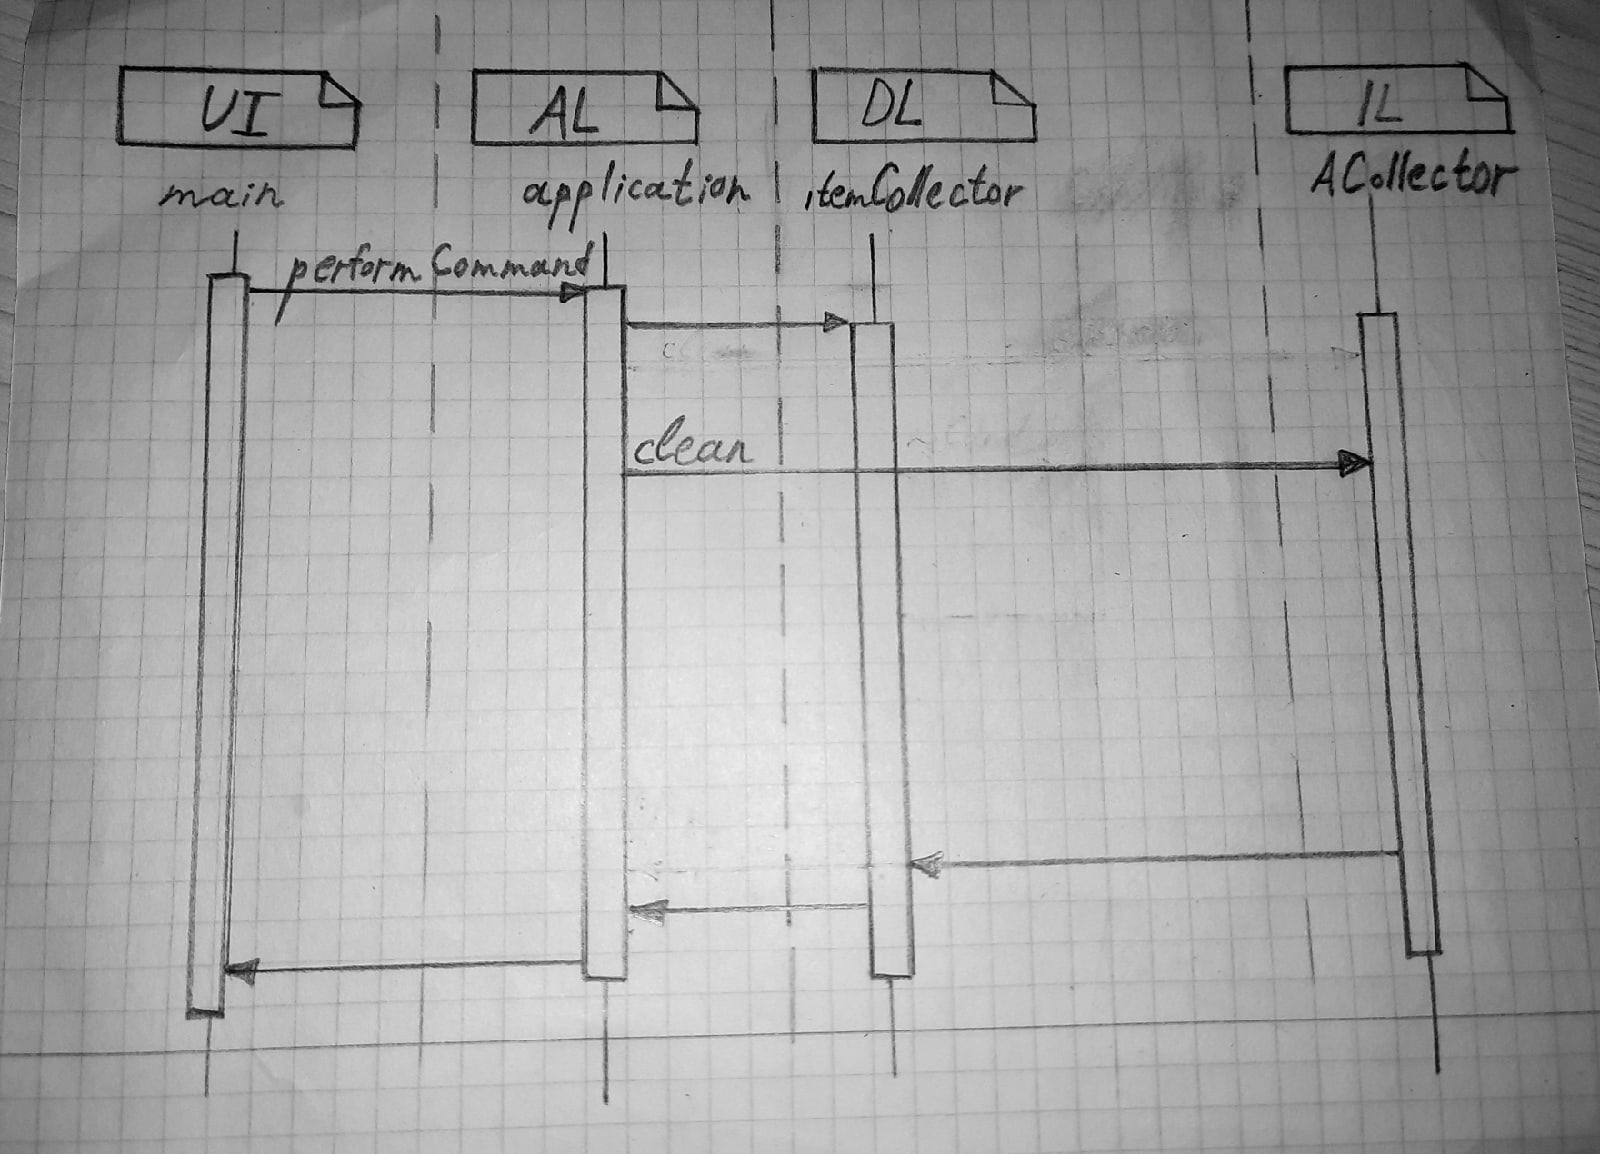 UI
AL
DL
IL
main
application
itemCollector
ACollector
performCommand
clean